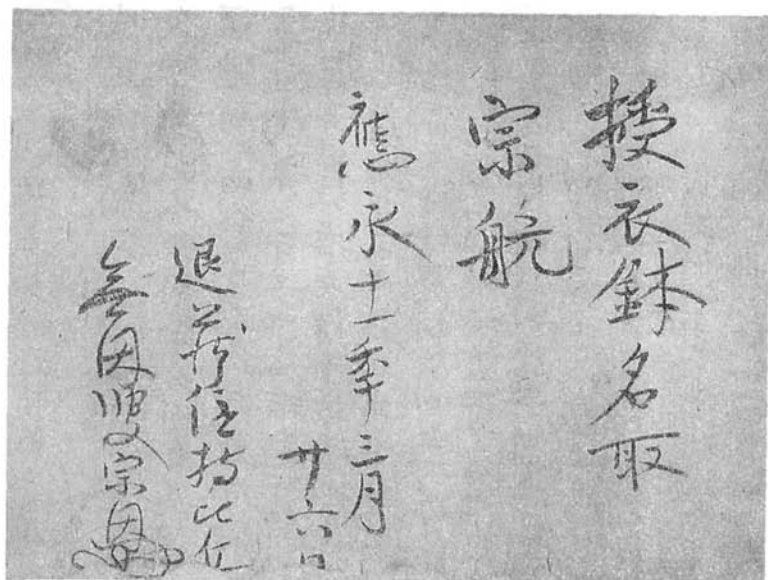 授衣鉢名取
宗航
應永十一季三月
廿六日
退蔵住持比丘
無因叟宗因